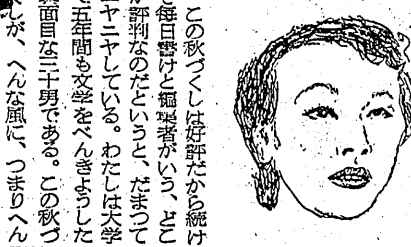 この秋づくしは好評だから続け
と毎日書けと編集者がいう、どこ
が評判なのだというと、だまつて
ニヤニヤしている。わたしは大学
で五年間も文学をべんきようした
真面目な三十男である。この秋づ
くしが、へんな風に、つまりへん